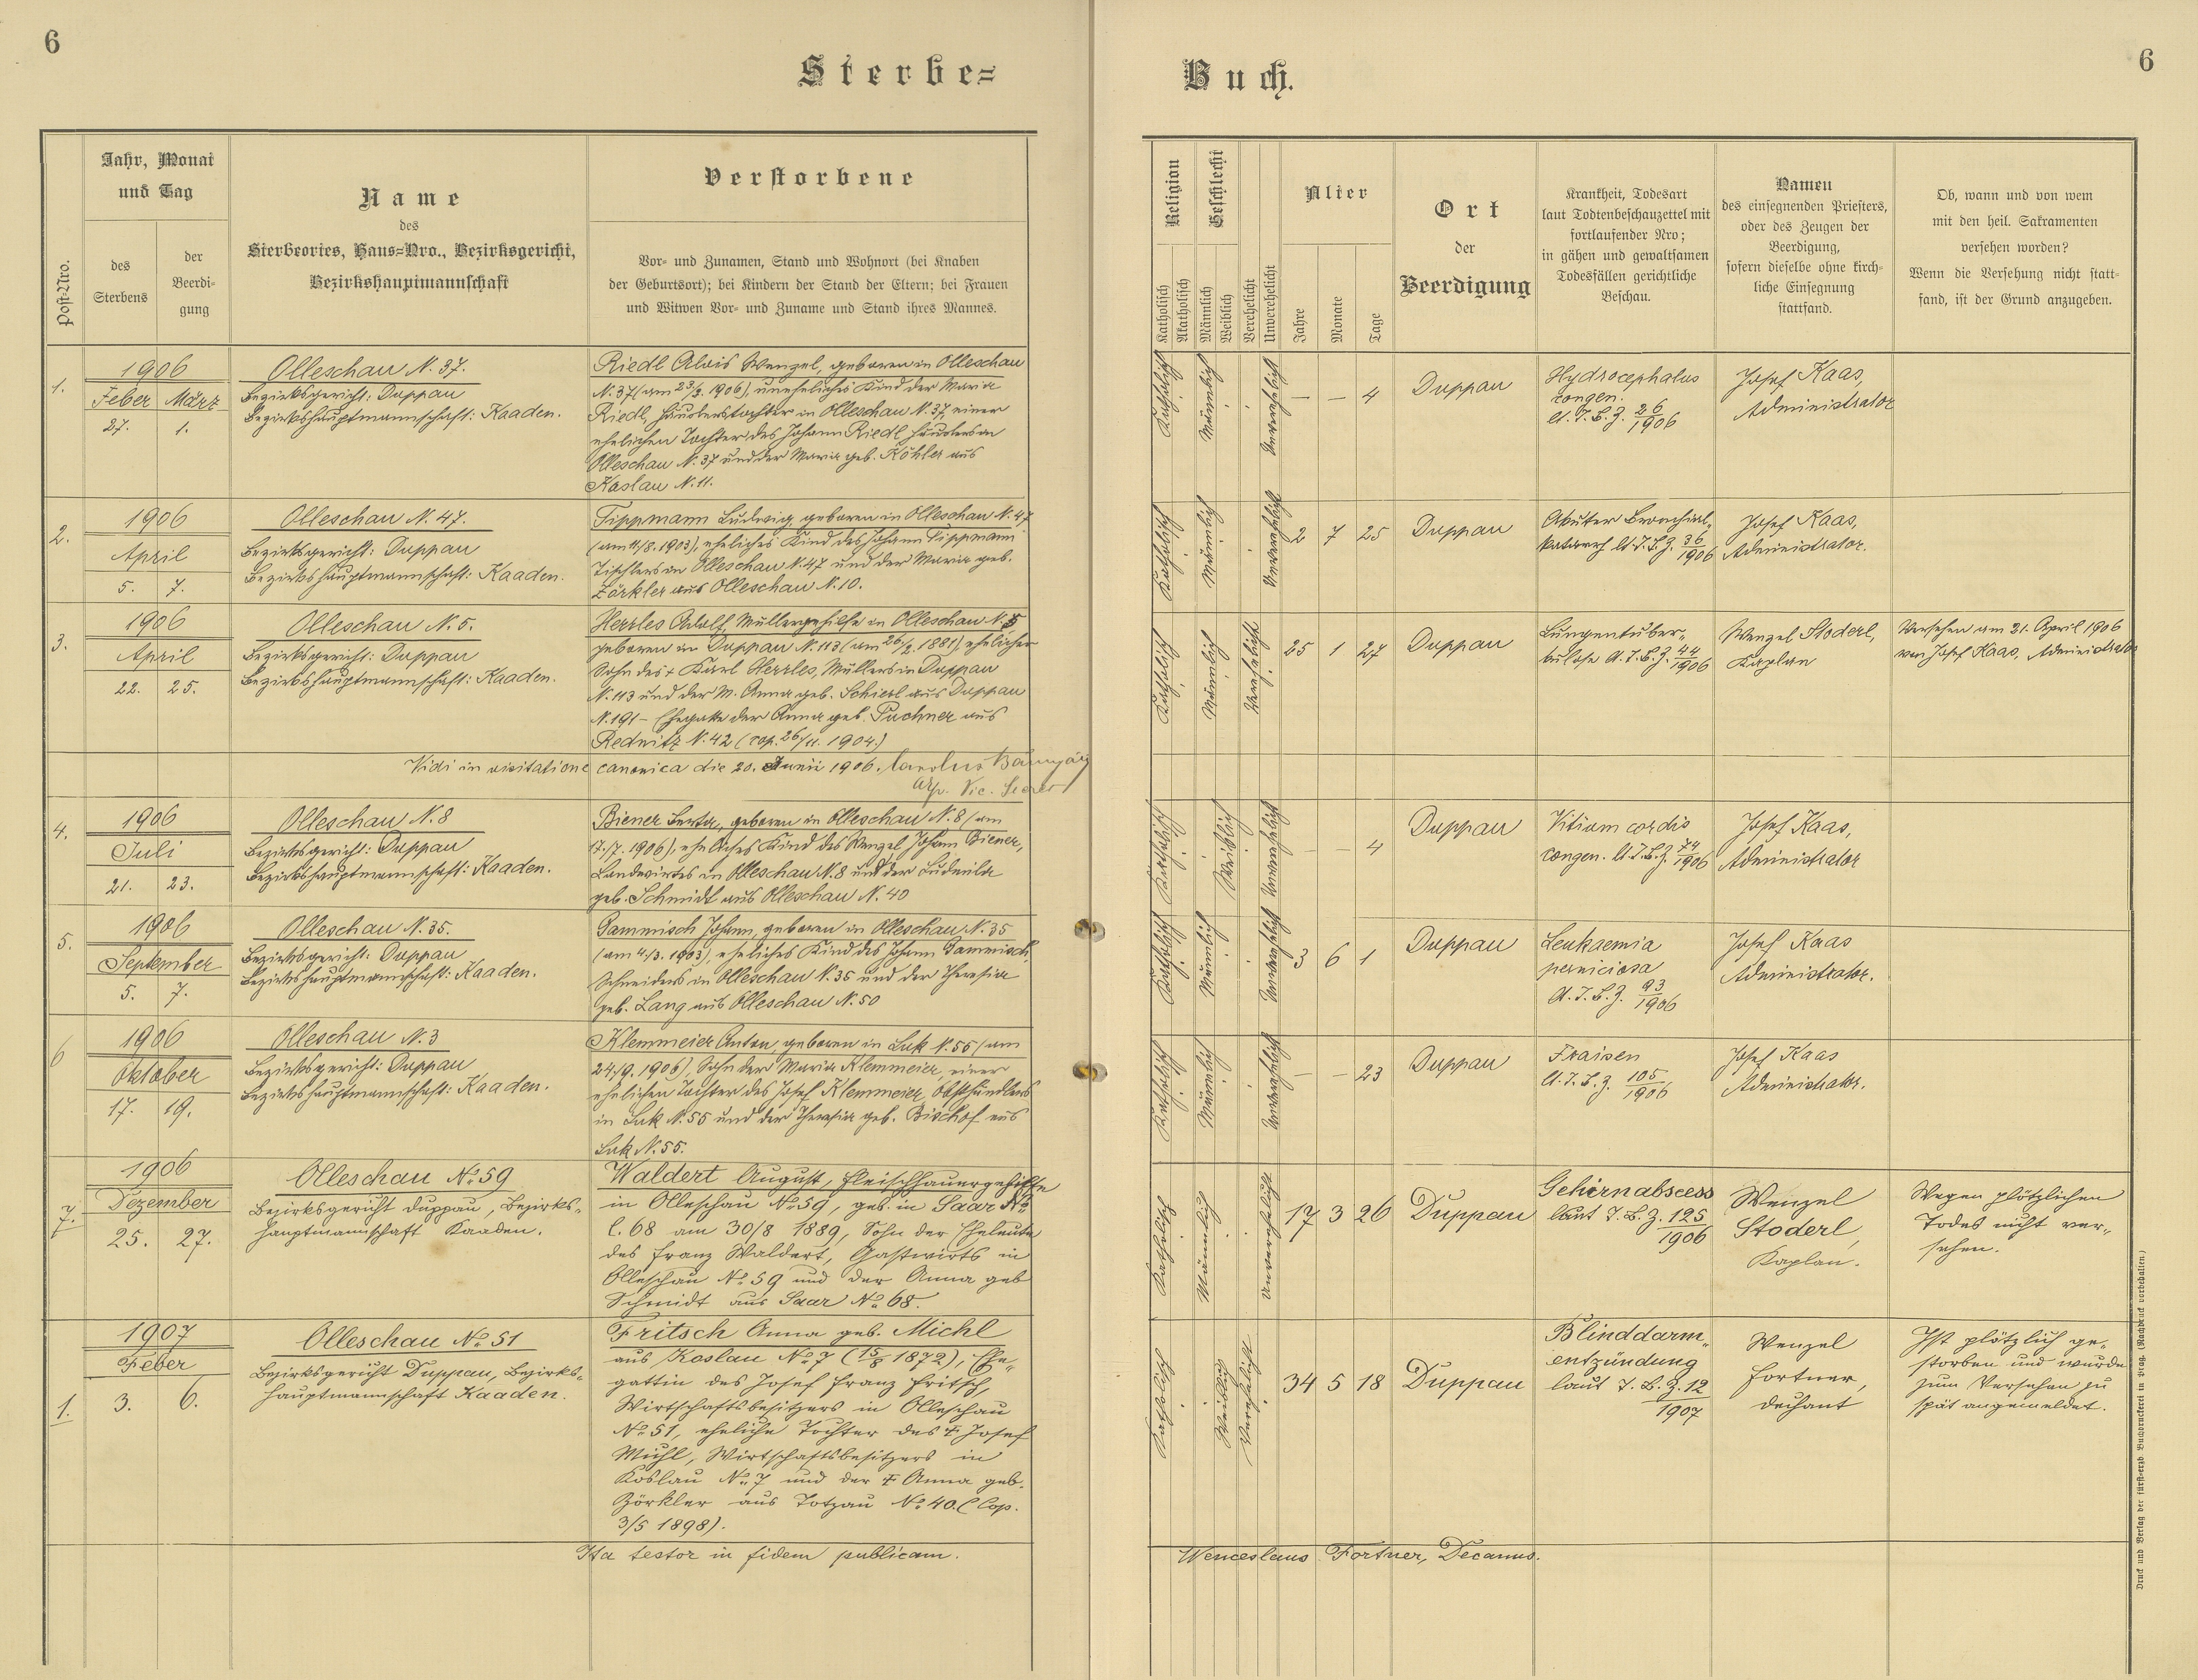 6
Sterbe=
Buch.
6
Post=Nro.
Jahr, Monat
und Tag
des
Sterbens
der
Beerdi-
gung
Name
des
Sterbeortes, Haus=Nro., Bezirksgericht,
Bezirkshauptmannschaft
Verstorbene
Vor- und Zunamen, Stand und Wohnort (bei Knaben
der Geburtsort); bei Kindern der Stand der Eltern; bei Frauen
und Witwen Vor- und Zuname und Stand ihres Mannes.
Religion
Katholisch
Akatholisch
Geschlecht
Männlich
Weiblich
Verehelicht
Unverehelicht
Alter
Jahre
Monate
Tage
Ort
der
Beerdigung
Krankheit, Todesart
laut Todtenbeschauzettel mit
fortlaufender Nro;
in gähen und gewaltsamen
Todesfällen gerichtliche
Beschau.
Namen
des einsegnenden Priesters,
oder des Zeugen der
Beerdigung,
sofern dieselbe ohne kirch-
liche Einsegnung
stattfand.
Ob, wann und von wem
mit den heil. Sakramenten
versehen worden?
Wenn die Versehung nicht statt-
fand, ist der Grund anzugeben.
1.
1906
Feber März
27. 1.
Olleschau N. 37.
Bezirksgericht: Duppau
Bezirkshauptmannschaft: Kaaden.
Riedl Alois Wenzel, geboren in Olleschau
N. 37 (am 23/2. 1906), uneheliches Kind der Maria
Riedl, Häuslerstochter in Olleschau N. 37, einer
ehelichen Tochter des Johann Riedl, Häuslers in
Olleschau N. 37 und der Maria geb. Köhler aus
Koslau N. 11.
Katholisch
Männlich
Unverehelicht
— — 4
Duppau
Hydrocephalus
congen.
lt. T. B. Z. 26/1906
Josef Kaas,
Administrator
2.
1906
April
5. 7.
Olleschau N. 47.
Bezirksgericht: Duppau
Bezirkshauptmannschaft: Kaaden.
Tippmann Ludwig, geboren in Olleschau N. 47
(am 11/8. 1903), eheliches Kind des Johann Tippmann
Tischlers in Olleschau N. 47 und der Maria geb.
Zörkler aus Olleschau N. 10.
Katholisch
Männlich
Unverehelicht
2 7 25
Duppau
Akuter Bronchial-
katarrh lt. T. B. Z. 36/1906
Josef Kaas,
Administrator.
3.
1906
April
22. 25.
Olleschau N. 5.
Bezirksgericht: Duppau
Bezirkshauptmannschaft: Kaaden.
Herrles Adolf, Müllergehilfe in Olleschau N. 5
geboren in Duppau N. 113 (am 26/2. 1881), ehelicher
Sohn des + Karl Herrles, Müllers in Duppau
N. 113 und der M. Anna geb. Schierl aus Duppau
N. 191 - Ehegatte der Anna geb. Puchner aus
Rednitz N. 42 (cop. 26/11. 1904.)
Katholisch
Männlich
Verehelicht
25 1 27
Duppau
Lungentuber-
kulose lt. T. B. Z. 44/1906
Wenzel Stoderl,
Kaplan
Versehen am 21. April 1906
von Josef Kaas, Administrator
Vidi in visitatione canonica die 20. Junii 1906. Carolus
Vic. Secret
4.
1906
Juli
21. 23.
Olleschau N. 8
Bezirksgericht: Duppau
Bezirkshauptmannschaft: Kaaden.
Biener Berta, geboren in Olleschau N. 8 (am
17./7. 1906), eheliches Kind des Wenzel Johann Biener,
Landwirtes in Olleschau N. 8 und der Ludmila
geb. Schmidt aus Olleschau N. 40
Katholisch
Weiblich
Unverehelicht
— — 4
Duppau
Vitium cordis
congen. lt. T. B. Z. 74/1906
Josef Kaas,
Administrator
5.
1906
September
5. 7.
Olleschau N. 35.
Bezirksgericht: Duppau
Bezirkshauptmannschaft: Kaaden.
Gammisch Johann, geboren in Olleschau N. 35
(am 4./3. 1903), eheliches Kind des Johann Gammisch,
Schneiders in Olleschau N. 35 und der Theresia
geb. Lang aus Olleschau N. 50
Katholisch
Männlich
Unverehelicht
3 6 1
Duppau
Leukaemia
perniciosa
lt. T. B. Z. 93/1906
Josef Kaas
Administrator.
6
1906
Oktober
17. 19.
Olleschau N. 3
Bezirksgericht: Duppau
Bezirkshauptmannschaft: Kaaden.
Klemmeier Anton, geboren in Luk N. 55 (am
24/9. 1906), Sohn der Maria Klemmeier, einer
ehelichen Tochter des Josef Klemmeier, Obsthändlers
in Luk N. 55 und der Theresia geb. Bischof aus
Luk N. 55.
Katholisch
Männlich
Unverehelicht
— — 23
Duppau
Fraisen
lt. T. B. Z. 105/1906
Josef Kaas
Administrator.
7.
1906
Dezember
25. 27.
Olleschau No 59
Bezirksgericht Duppau, Bezirks-
hauptmannschaft Kaaden.
Waldert August, Fleischhauergehilfe
in Olleschau No 59, geb. in Saar No
C. 68 am 30/8 1889, Sohn der Eheleute
des Franz Waldert, Gastwirts in
Olleschau No 59 und der Anna geb
Schmidt aus Saar No 68.
Katholisch
Männlich
Unverehelicht
17 3 26
Duppau
Gehirnabscess
laut T. B. Z. 125/1906
Wenzel
Stoderl,
Kaplan.
Wegen plötzlichen
Todes nicht ver-
sehen.
1.
1907
Feber
3. 6.
Olleschau No 51
Bezirksgericht Duppau, Bezirks-
hauptmannschaft Kaaden.
Fritsch Anna geb. Michl
aus Koslau No 7 (15/8 1872), Ehe-
gattin des Josef Franz Fritsch,
Wirtschaftsbesitzers in Olleschau
No 51, eheliche Tochter des + Josef
Michl, Wirtschaftsbesitzers in
Koslau No 7 und der + Anna geb.
Zörkler aus Totzau No 40. (Cop.
3/5 1898).
Katholisch
Weiblich
Verehelicht
34 5 18
Duppau
Blinddarm-
entzündung
laut T. B. Z. 12/1907
Wenzel
Fortner,
Dechant
Ist plötzlich ge-
storben und wurde
zum Versehen zu
spät angemeldet.
Ita testor in fidem publicam.
Wenceslaus Fortner, Decanus.
Druck und Verlag der fürst=erzb. Buchdruckerei in Prag. (Nachdruck vorbehalten.)